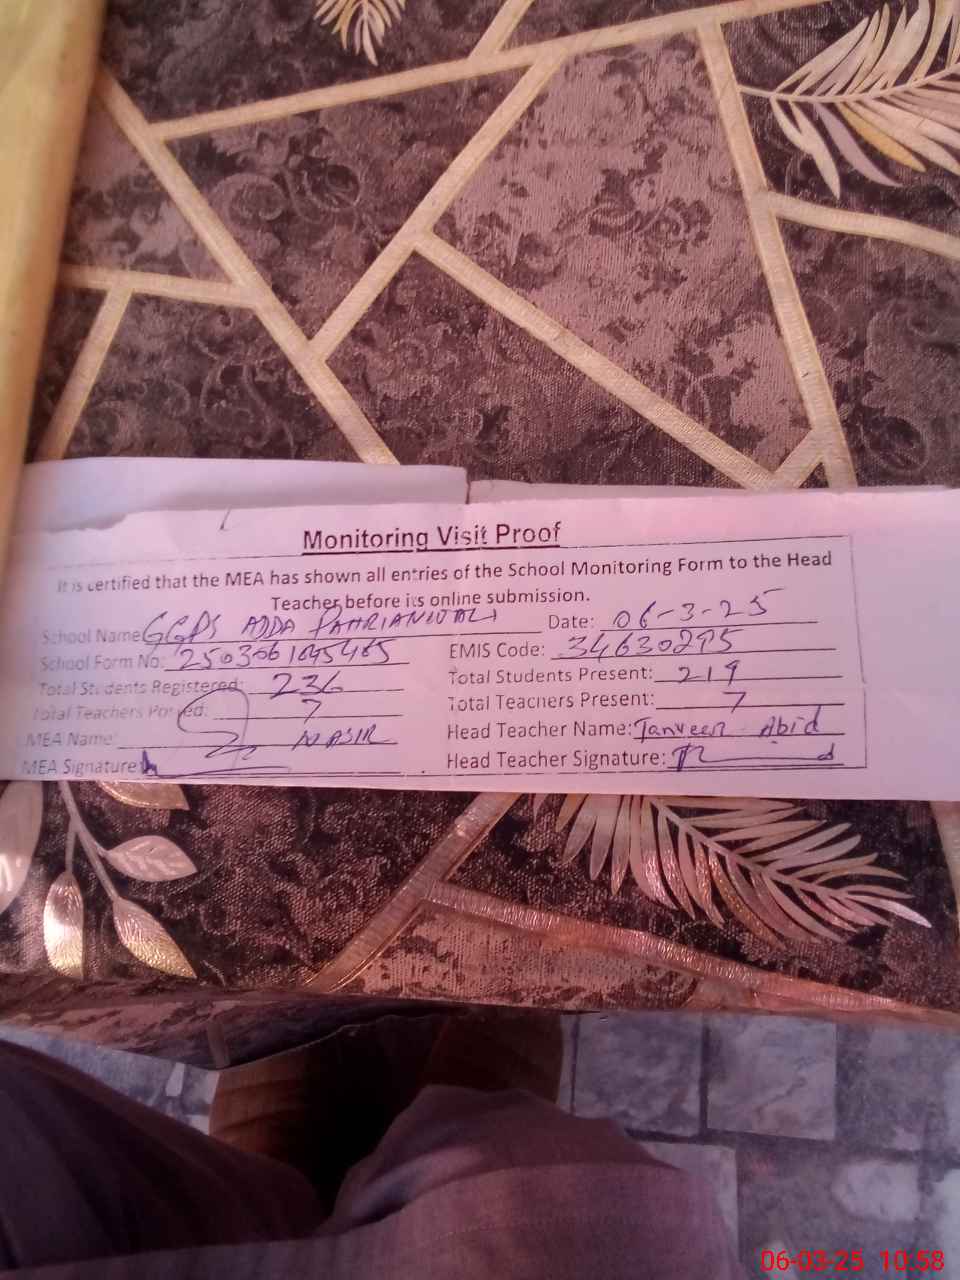 Monitoring Visit Proof
It is certified that the MEA has shown all entries of the School Monitoring Form to the Head
Teacher before its online submission.
School Name GGPS ADDA PAHRIANWALI Date: 06-3-25
School Form No: 2503061645465 EMIS Code: 34630295
Total Students Registered: 236 Total Students Present: 219
Total Teachers Posted: 7 Total Teachers Present: 7
MEA Name: NASIR Head Teacher Name: Tanveer Abid
MEA Signature: Head Teacher Signature:
06-03-25 10:58